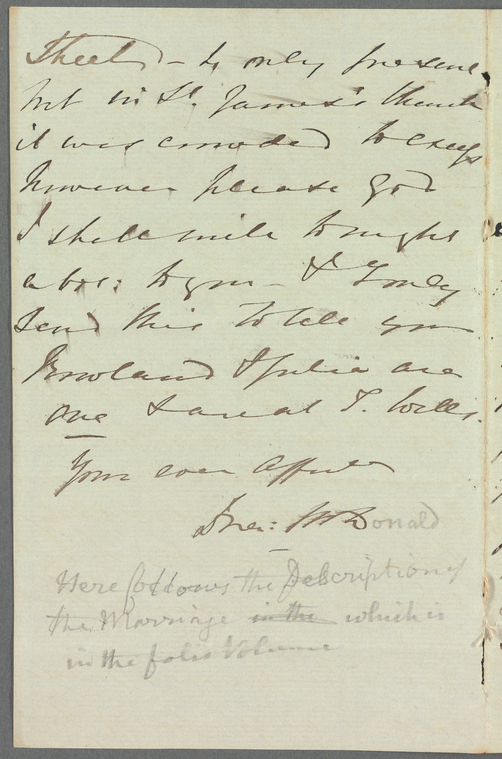 Street - & only presume
but in St. James's Church
it was crowded to excess
however please God
I shall write tonight
to you - & I only
Send this to tell you
Rowland & Julia are
one & are at T. Wells.
Your ever Affte
McDonald
Here follows the Description of
the Marriage in the which is
in the folio Volume